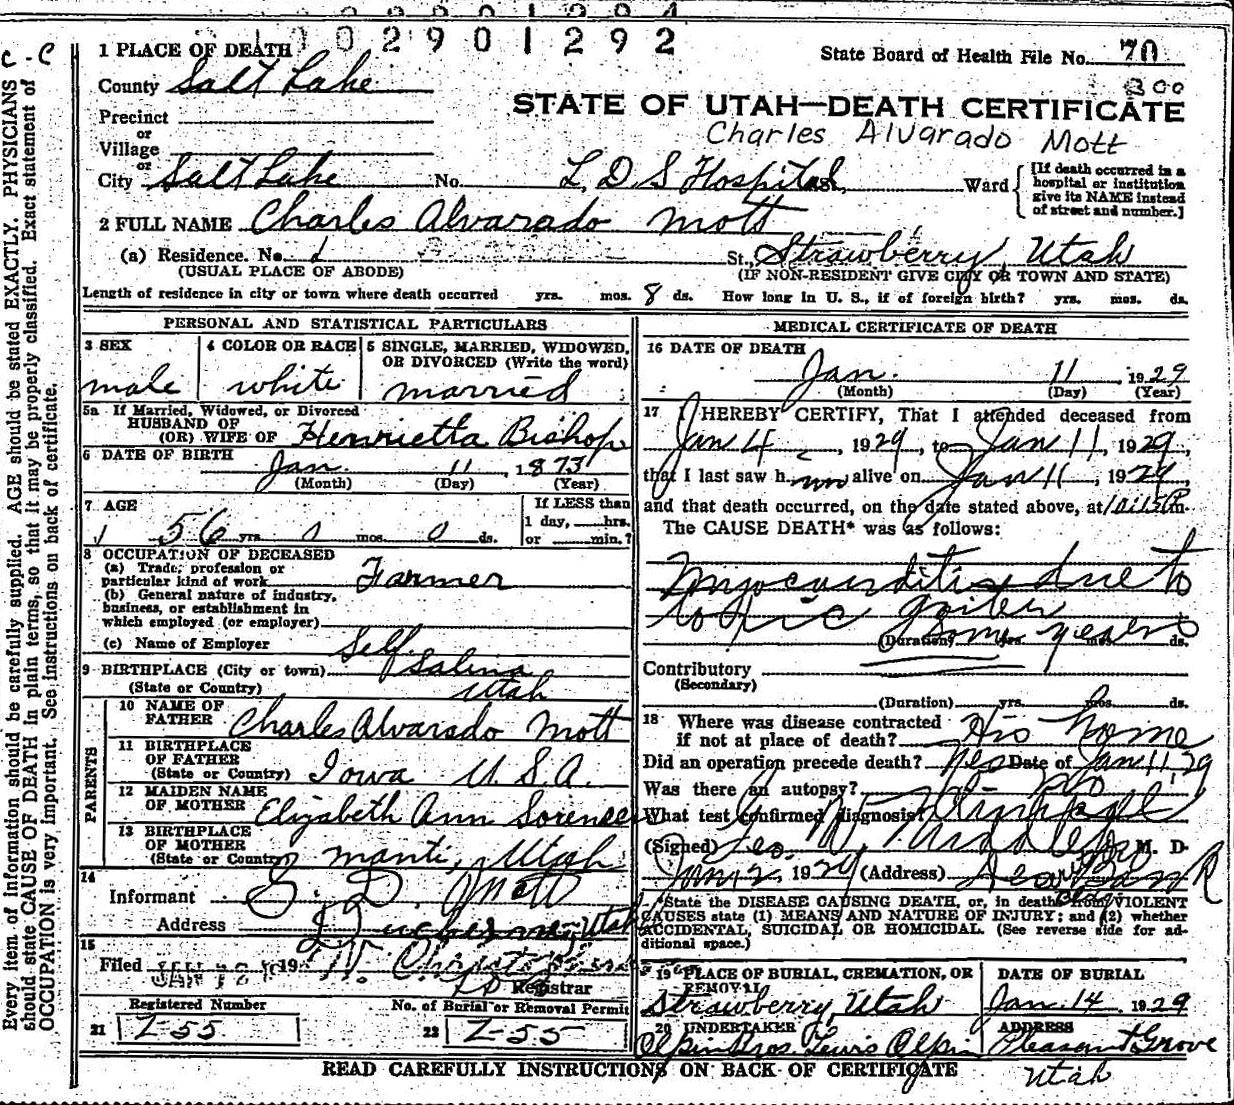 0 0 2 9 0 1 2 9 2
C - C
1 PLACE OF DEATH
State Board of Health File No. 70
County Salt Lake
300
STATE OF UTAH—DEATH CERTIFICATE
Precinct
or
Village
Charles Alvarado Mott
or
City Salt Lake No. L. D S Hospital, Ward
[If death occurred in a hospital or institution give its NAME instead of street and number.]
2 FULL NAME Charles Alvarado Mott
(a) Residence. No. St., Strawberry, Utah
(USUAL PLACE OF ABODE) (IF NON-RESIDENT GIVE CITY OR TOWN AND STATE)
Length of residence in city or town where death occurred yrs. mos. 8 ds. How long in U. S., if of foreign birth? yrs. mos. ds.
PERSONAL AND STATISTICAL PARTICULARS
3 SEX
male
4 COLOR OR RACE
white
5 SINGLE, MARRIED, WIDOWED,
OR DIVORCED (Write the word)
married
5a If Married, Widowed, or Divorced
HUSBAND OF
(OR) WIFE OF Henrietta Bishop
6 DATE OF BIRTH
Jan. 11, 1873
(Month) (Day) (Year)
7 AGE
56 yrs. 0 mos. 0 ds.
If LESS than
1 day, hrs.
or min.?
8 OCCUPATION OF DECEASED
(a) Trade, profession or
particular kind of work Farmer
(b) General nature of industry,
business, or establishment in
which employed (or employer)
(c) Name of Employer Self.
9 BIRTHPLACE (City or town) Salina
(State or Country) Utah
PARENTS
10 NAME OF
FATHER Charles Alvarado Mott
11 BIRTHPLACE
OF FATHER
(State or Country) Iowa U. S. A.
12 MAIDEN NAME
OF MOTHER Elizabeth Ann Sorensen
13 BIRTHPLACE
OF MOTHER
(State or Country) Manti, Utah
14
Informant Mott
Address Duchesne, Utah
15
Filed JAN 12 19
Registrar
Registered Number
21 Z-55
No. of Burial or Removal Permit
22 Z-55
MEDICAL CERTIFICATE OF DEATH
16 DATE OF DEATH
Jan. 11, 1929
(Month) (Day) (Year)
17 I HEREBY CERTIFY, That I attended deceased from
Jan 4, 1929, to Jan 11, 1929,
that I last saw him alive on Jan 11, 1929,
and that death occurred, on the date stated above, at m.
The CAUSE DEATH* was as follows:
Myocarditis due to
toxic goiter
(Duration) Some yrs. years ds.
Contributory
(Secondary)
(Duration) yrs. mos. ds.
18 Where was disease contracted
if not at place of death? His home
Did an operation precede death? Yes Date of Jan 11, 29
Was there an autopsy? No
What test confirmed diagnosis? Clinical
(Signed) Geo. W. Middleton M. D.
Jan 12, 1929 (Address)
*State the DISEASE CAUSING DEATH, or, in deaths from VIOLENT
CAUSES state (1) MEANS AND NATURE OF INJURY; and (2) whether
ACCIDENTAL, SUICIDAL OR HOMICIDAL. (See reverse side for ad-
ditional space.)
19 PLACE OF BURIAL, CREMATION, OR
REMOVAL
Strawberry, Utah
DATE OF BURIAL
Jan. 14 1929
20 UNDERTAKER
Olpin Bros. Lewis Olpin
ADDRESS
Pleasant Grove
Utah
READ CAREFULLY INSTRUCTIONS ON BACK OF CERTIFICATE
Every item of information should be carefully supplied. AGE should be stated EXACTLY. PHYSICIANS
should state CAUSE OF DEATH in plain terms, so that it may be properly classified. Exact statement of
OCCUPATION is very important. See instructions on back of certificate.